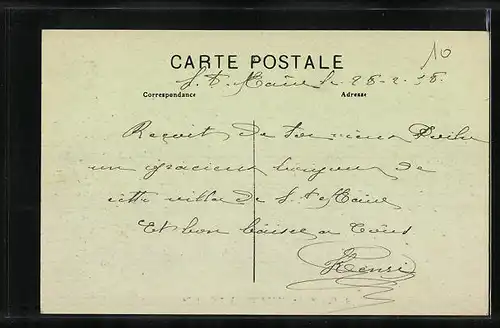 10
CARTE POSTALE
St Maur le 28-2-35
Correspondance Adresse
Reçoit de ton vieux
un gracieux bonjour de
cette ville de St Maur
Et bon baiser a Tous
Henri